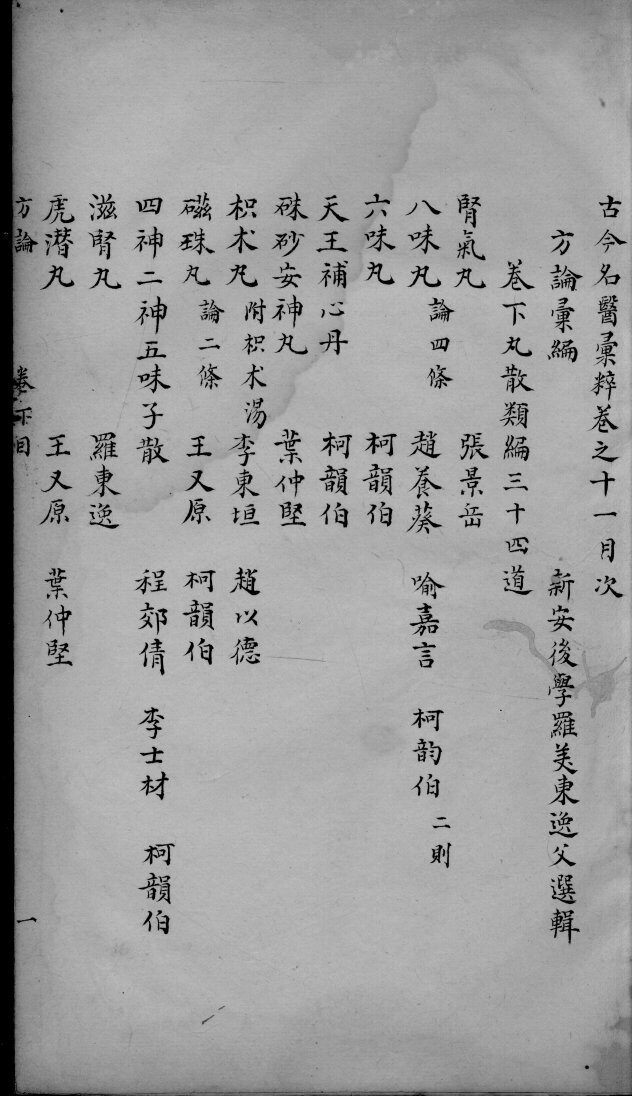 古今名醫彙粹卷之十一月次
方論彙編 新安後學羅美東逸父選輯
卷下丸散類編三十四道
腎氣丸 張景岳
八味丸 論四條 趙養葵 喻嘉言 柯韵伯 二則
六味丸 柯韻伯
天王補心丹 柯韻伯
硃砂安神丸 葉仲堅
枳朮丸 附枳朮湯 李東垣 趙以德
磁珠丸 論二條 王又原 柯韻伯
四神二神五味子散 程郊倩 李士材 柯韻伯
滋腎丸 羅東逸
虎潛丸 王又原 葉仲堅
方論 卷下目 一